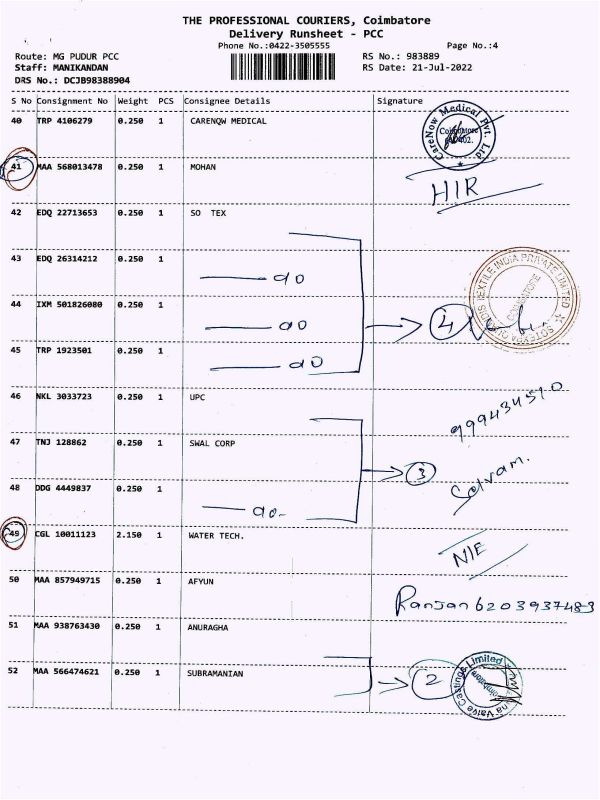 THE PROFESSIONAL COURIERS, Coimbatore
Delivery Runsheet - PCC
Phone No.:0422-3505555 Page No.:4
Route: MG PUDUR PCC RS No.: 983889
Staff: MANIKANDAN RS Date: 21-Jul-2022
DRS No.: DCJB98388904
S No Consignment No Weight PCS Consignee Details Signature
40 TRP 4106279 0.250 1 CARENOW MEDICAL
CareNow Medical Pvt. Ltd
41 MAA 568013478 0.250 1 MOHAN
HIR
42 EDQ 22713653 0.250 1 SO TEX
43 EDQ 26314212 0.250 1
do
44 IXM 501826080 0.250 1
do 4
TEXTILE INDIA PRIVATE LIMITED
COIMBATORE
45 TRP 1923501 0.250 1
do
46 NKL 3033723 0.250 1 UPC
999434510
47 TNJ 128862 0.250 1 SWAL CORP
3
48 DDG 4449837 0.250 1
Selvam.
do-
49 CGL 10011123 2.150 1 WATER TECH.
NIE
50 MAA 857949715 0.250 1 AFYUN
Ranjan 6203937483
51 MAA 938763430 0.250 1 ANURAGHA
52 MAA 566474621 0.250 1 SUBRAMANIAN
2
Valve Castings Limited